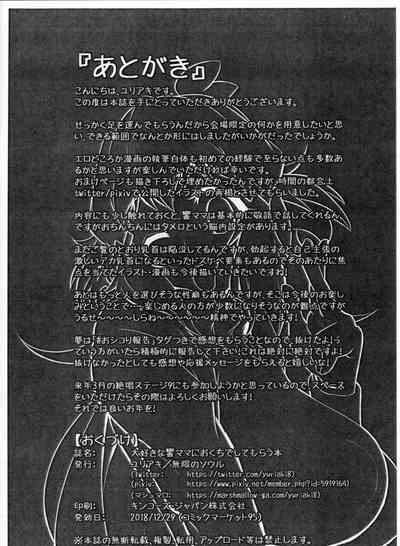 『あとがき』
こんにちは、ユリアキです。
この度は本誌を手にとっていただきありがとうございます。
せっかく足を運んでもらうんだから会場限定の何かを用意したいと思
い、できる範囲でなんとか形にはしましたがいかがだったでしょうか。
エロどころか漫画の執筆自体も初めての経験で至らない点も多数あ
るかと思いますが楽しんでいただければ幸いです。
おまけページも描き下ろしで埋めたかったんですが、時間の都合上
twitter/pixivで公開したイラストの再掲とさせてもらいました。
内容にも少し触れておくと、響ママは基本的に敬語で話してくれるん
ですがおちんちんにはタメ口という脳内設定があります。
またご覧のとおり乳首は陥没してるんですが、勃起すると自己主張の
激しいデカ乳首になるといったドスケベ要素もあるのでそのあたりに焦
点を当てたイラスト・漫画も今後描いていきたいですね!
あとはもっと人を選びそうな性癖もあるんですが、そこは今後のお楽し
みということで…っ楽しめる人の方が少数になりそうなのが難点ですが
うるせ〜〜〜〜しらね〜〜〜〜〜〜精神でやっていきます!
夢は「#おシコり報告」タグつきで感想をもらうことなので、抜けたよっ
ていう方がいたら積極的に報告して下さい!これは絶対に絶対ですよ!
抜けなかったとしても感想や応援メッセージをもらえると嬉しいな!
来年3月の絶唱ステージ9にも参加しようかと思っているので、スペースを
いただけたらその際はよろしくお願いします!
それでは良いお年を!
【おくづけ】
誌名: 大好きな響ママにおくちでしてもらう本
発行: ユリアキ/無限のソウル
(twitter: https://twitter.com/yuriaki8)
(pixiv: https://www.pixiv.net/member.php?id=5919164)
(マシュマロ: https://marshmallow-qa.com/yuriaki8)
印刷: キンコーズ・ジャパン株式会社
発効日: 2018/12/29(コミックマーケット95)
※本誌の無断転載、複製、転用、アップロード等は禁止します。